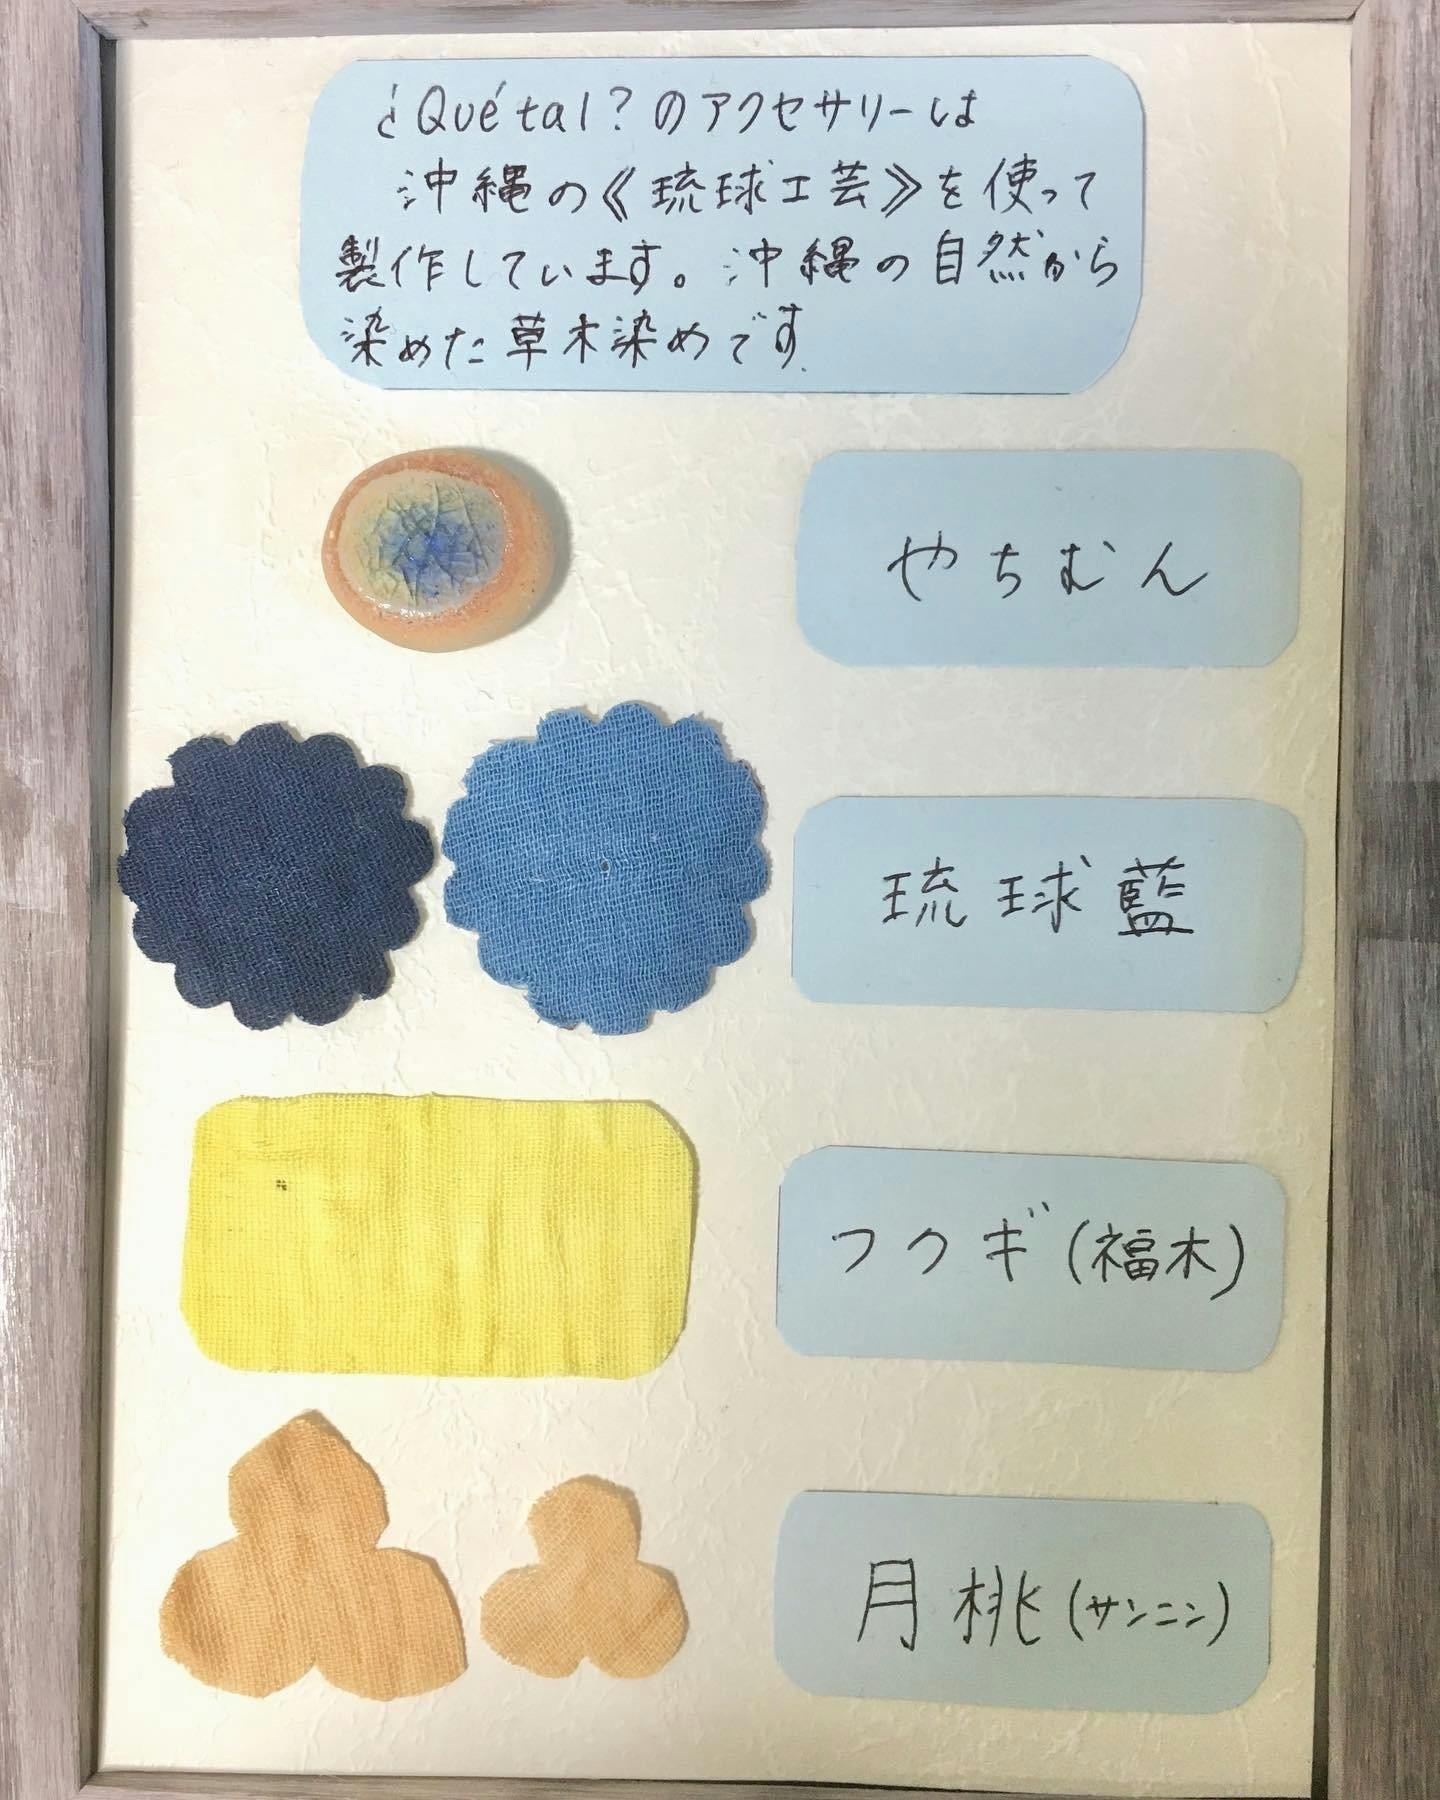 ¿Qué tal?のアクセサリーは
沖縄の《琉球工芸》を使って
製作しています。沖縄の自然から
染めた草木染めです.
やちむん
琉球藍
フクギ(福木)
月桃(サンニン)